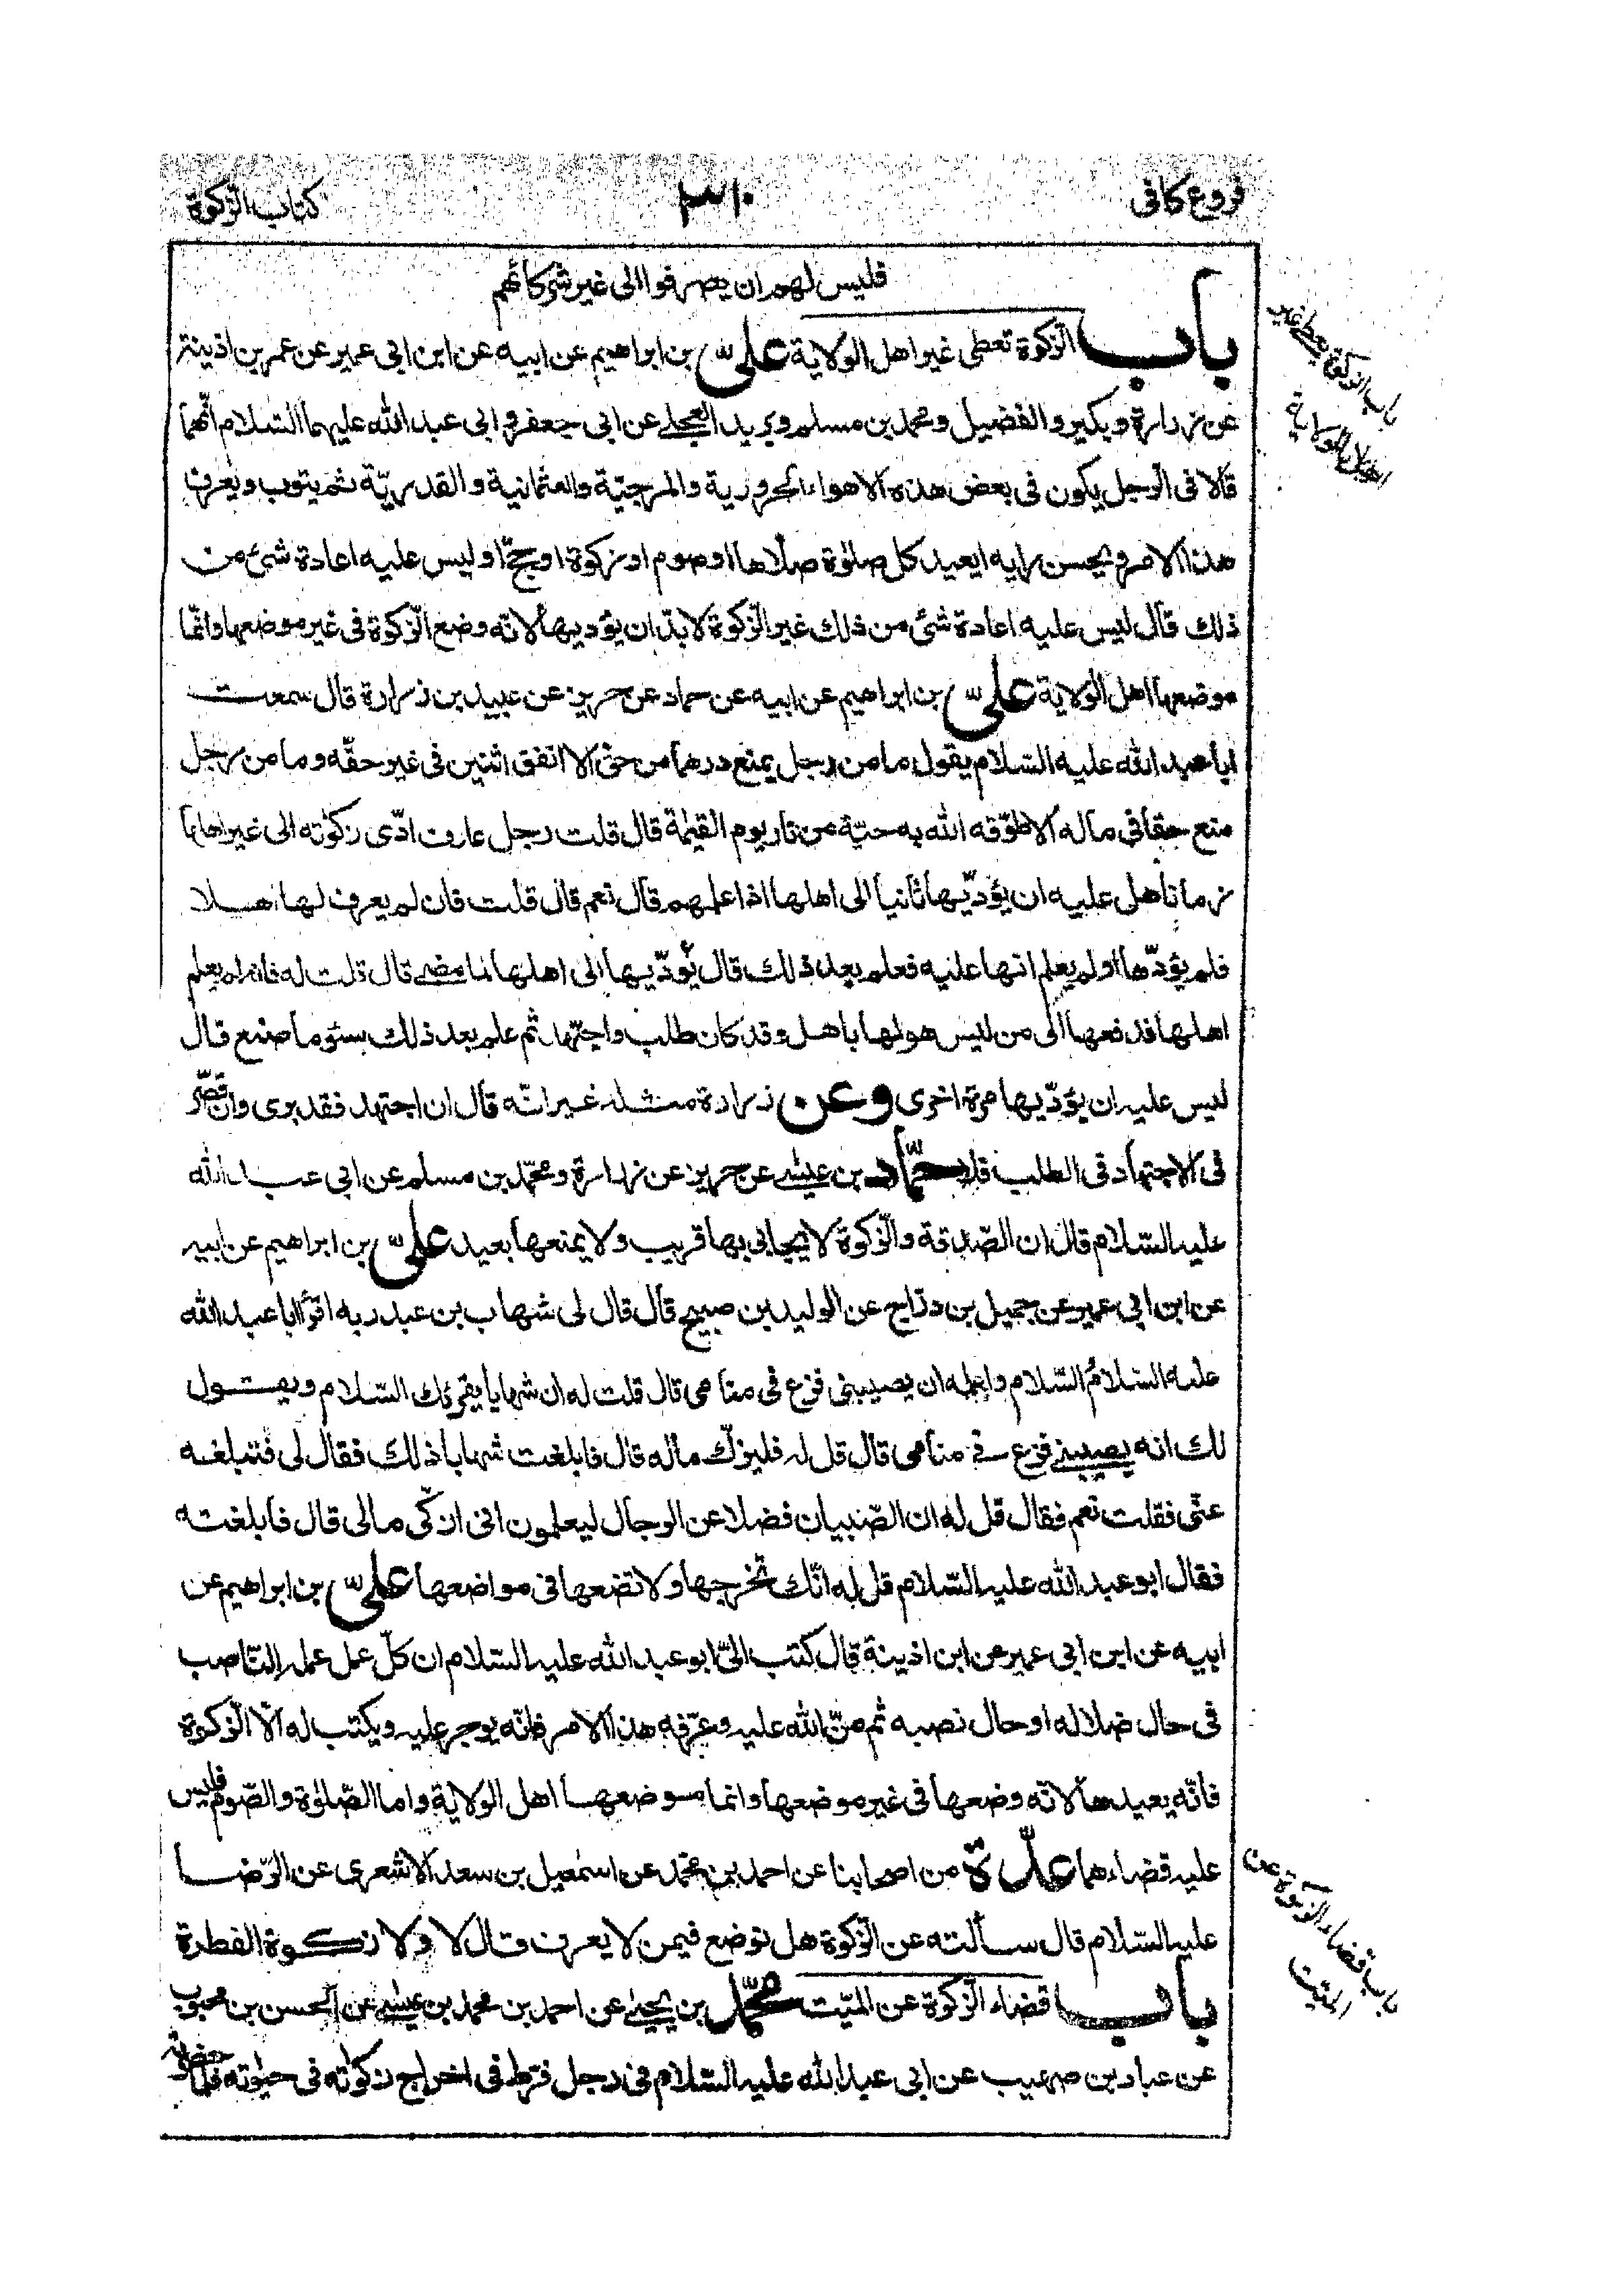 فروع كافى
٣١٠
كتاب الزكوة
فليس لهم ان يصرفوا الى غير شركائهم
باب الزكوة تعطى غير اهل الولاية علىّ بن ابراهيم عن ابيه عن ابن ابى عمير عن عمر بن اذينة
عن زرارة وبكير والفضيل ومحمد بن مسلم وبريد العجلى عن ابى جعفر وابى عبد الله عليهما السّلام انّهما
قالا فى الرجل يكون فى بعض هذه الاهواء الحرورية والمرجئة والعثمانية والقدريّة ثم يتوب ويعرف
هذا الامر ويحسن رايه ايعيد كل صلوة صلّاها او صوم او زكوة او حجّ او ليس عليه اعادة شئ من
ذلك قال ليس عليه اعادة شئ من ذلك غير الزّكوة لا بدّ ان يؤديها لانّه وضع الزّكوة فى غير موضعها وانّما
موضعها اهل الولاية علىّ بن ابراهيم عن ابيه عن حماد عن حريز عن عبيد بن زرارة قال سمعت
ابا عبد الله عليه السّلام يقول ما من رجل يمنع درهما من حقّ الا انفق اثنين فى غير حقّه وما من رجل
منع حقا فى ماله الا طوّقه الله به حيّة من نار يوم القيمة قال قلت رجل عارف ادّى زكوته الى غير اهلها
زمانا هل عليه ان يؤدّيها ثانيا الى اهلها اذا علمهم قال نعم قال قلت فان لم يعرف لها اهلا
فلم يؤدّها او لم يعلم انها عليه فعلم بعد ذلك قال يؤدّيها الى اهلها لما مضى قال قلت له فانه لم يعلم
اهلها فدفعها الى من ليس هو لها باهل وقد كان طلب واجتهد ثم علم بعد ذلك بسئو ما صنع قال
ليس عليه ان يؤدّيها مرة اخرى وعن زرارة مثله غير انّه قال ان اجتهد فقد برى وان قصّر
فى الاجتهاد فى الطلب فلا حمّاد بن عيسى عن حريز عن زرارة ومحمّد بن مسلم عن ابى عبد الله
عليه السّلام قال ان الصّدقة والزّكوة لا يحابى بها قريب ولا يمنعها بعيد علىّ بن ابراهيم عن ابيه
عن ابن ابى عمير عن جميل بن دراج عن الوليد بن صبيح قال قال لى شهاب بن عبد ربه اقرأ ابا عبد الله
عليه السّلام السّلام واعلمه ان يصيبنى فزع فى منامى قال قلت له ان شهابا يقرئك السّلام ويقول
لك انه يصيبنى فزع فى منامى قال قل له فليزكّ ماله قال فابلغت شهابا ذلك فقال لى فتبلغه
عنّى فقلت نعم فقال قل له ان الصّبيان فضلا عن الرجال ليعلمون انى ازكّى مالى قال فابلغته
فقال ابو عبد الله عليه السّلام قل له انّك تخرجها ولا تضعها فى مواضعها علىّ بن ابراهيم عن
ابيه عن ابن ابى عمير عن ابن اذينة قال كتب الىّ ابو عبد الله عليه السّلام ان كلّ عمل عمله النّاصب
فى حال ضلاله او حال نصبه ثم منّ الله عليه وعرّفه هذا الامر فانّه يوجر عليه ويكتب له الّا الزّكوة
فانّه يعيدها لانّه وضعها فى غير موضعها وانما موضعها اهل الولاية واما الصّلوة والصّوم فليس
عليه قضاءهما عدّة من اصحابنا عن احمد بن محمّد عن اسمعيل بن سعد الاشعرى عن الرّضا
عليه السّلام قال سألته عن الزّكوة هل توضع فيمن لا يعرف قال لا ولا زكوة الفطرة
باب قضاء الزّكوة عن الميّت محمّد بن يحيى عن احمد بن محمد بن عيسى عن الحسن بن محبوب
عن عباد بن صهيب عن ابى عبد الله عليه السّلام فى رجل فرّط فى اخراج زكوته فى حيوته فلمّا حضرته
باب الزكوة يعطى غير
اهل الولاية
باب قضاء الزكوة عن
الميّت